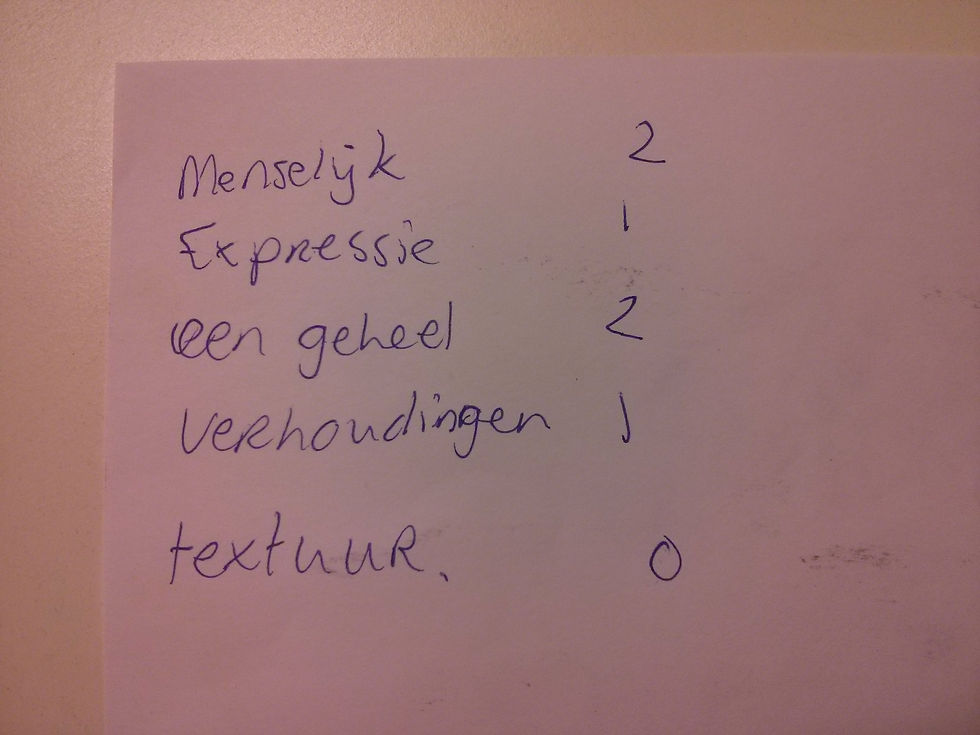 Menselijk 2
Expressie 1
een geheel 2
Verhoudingen 1
textuur. 0